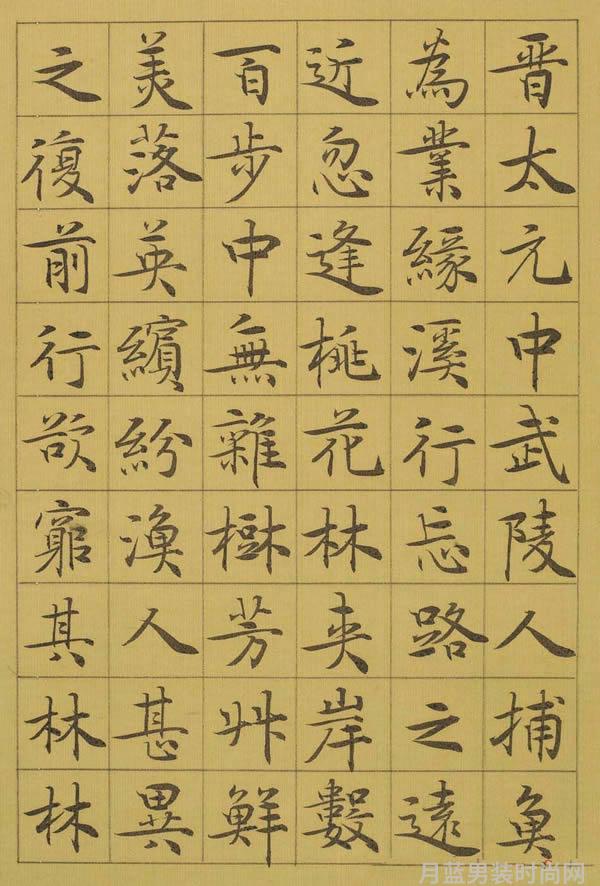 晋太元中武陵人捕魚
為業緣溪行忘路之遠
近忽逢桃花林夾岸數
百步中無雜樹芳艸鮮
美落英繽紛漁人甚異
之復前行欲窮其林林
月蓝男装时尚网